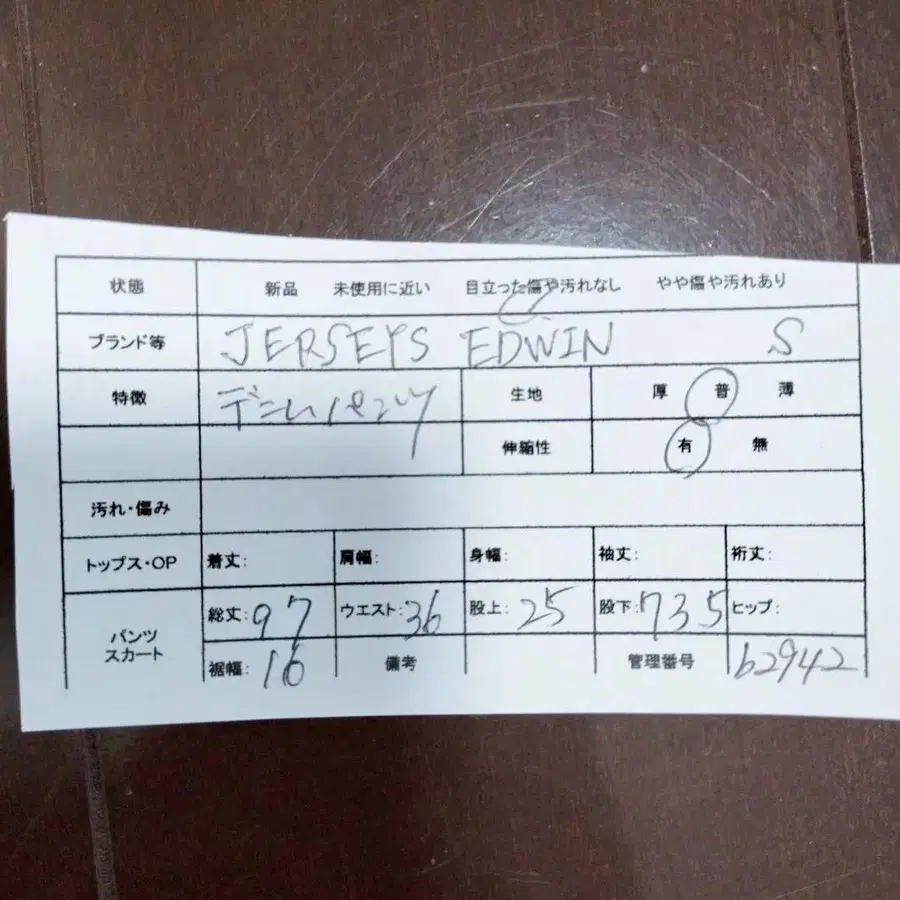 状態 新品 未使用に近い 目立った傷や汚れなし やや傷や汚れあり
ブランド等 JERSEYS EDWIN S
特徴 デニムパンツ 生地 厚 普 薄
伸縮性 有 無
汚れ・傷み
トップス・OP 着丈: 肩幅: 身幅: 袖丈: 裄丈:
パンツ スカート 総丈:97 ウエスト:36 股上:25 股下:735 ヒップ:
裾幅:16 備考 管理番号 b2942